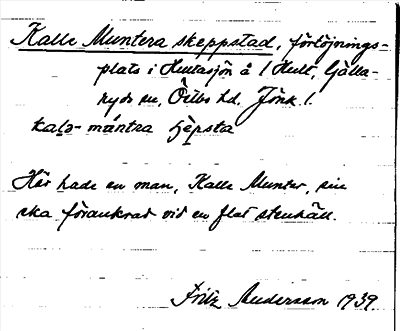 Kalle Muntera skeppstad, förtöjnings-
plats i Hultasjön å 1 Hult, Gälla-
ryds sn, Östbo hd. Jönk. l.
kalə-mántra
Här hade en man, Kalle Munter, sin
eka förankrad vid en flat stenhäll.
Fritz Andersson 1939.